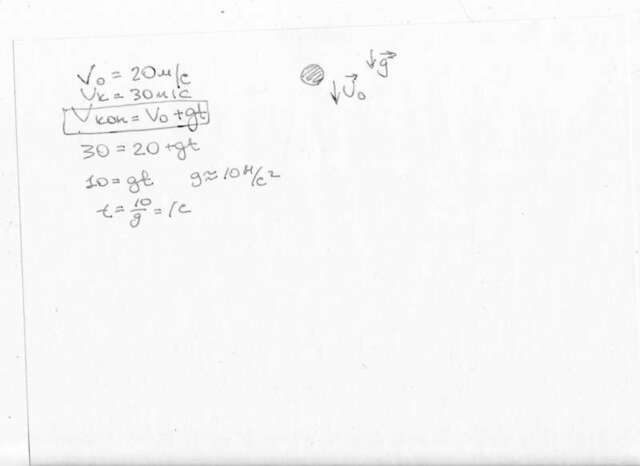 V₀ = 20м/с
Vк = 30м/с
Vкон = V₀ + gt
30 = 20 + gt
10 = gt g ≈ 10м/с²
t = 10/g = 1с
g⃗
V⃗₀